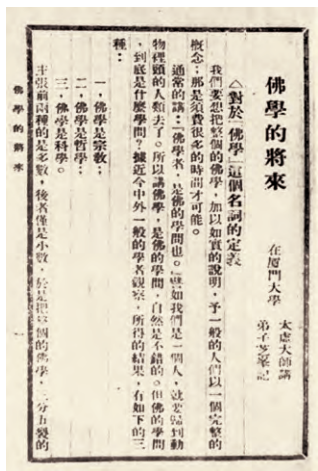 佛學的將來
在厦門大學
太虛大師講
弟子芝峯記
△對於「佛學」這個名詞的定義
我們要想把整個的佛學，加以如實的說明，予一般的人們以一個完整的
概念；那是須費很多的時間才可能。
通常的講：「佛學者，是佛的學問也。」譬如我們是一個人，就要歸到動
物裡頭的人類去了。所以講佛學，是佛的學問，自然是不錯的。但佛的學問
，到底是什麼學問？據近今中外一般的學者觀察，所得的結果，有如下的三
種：
一，佛學是宗教；
二，佛學是哲學；
三，佛學是科學。
主張前兩種的是多數，後者僅是小數，於是把整個的佛學，三分五裂的
佛學的將來